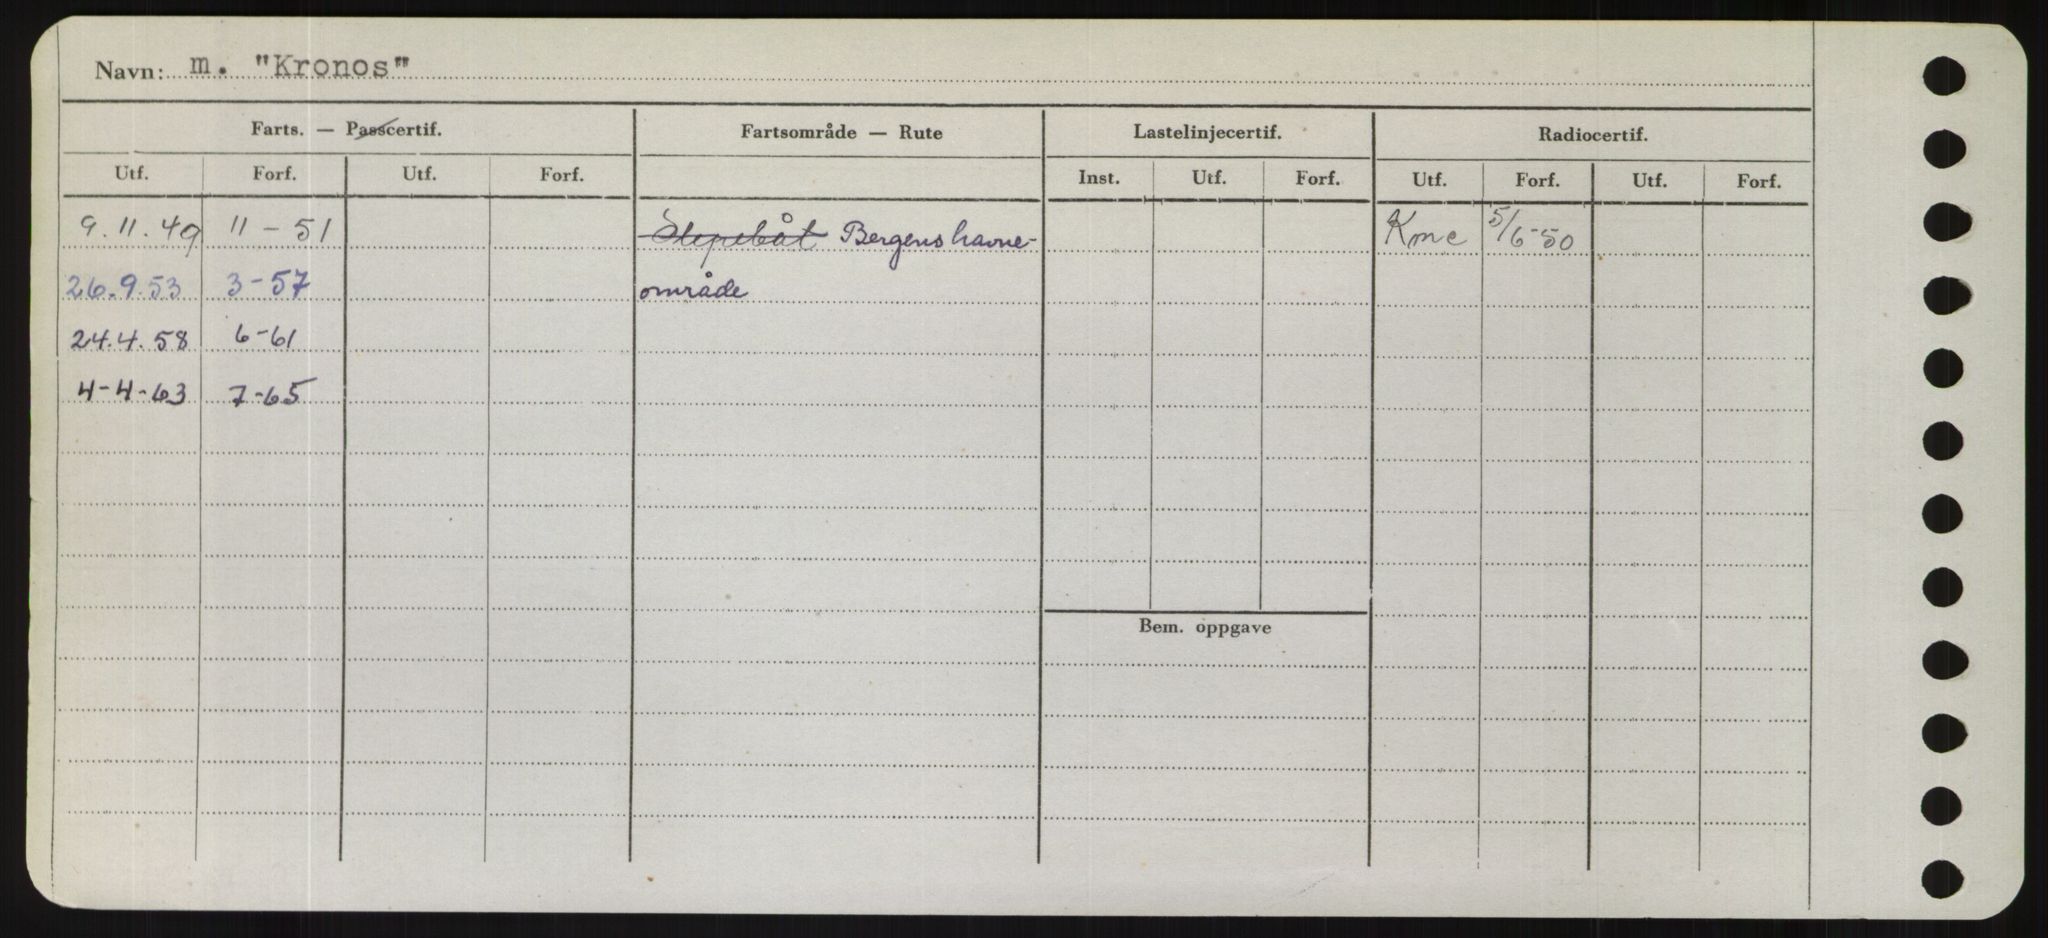 Navn: m. "Kronos"
Farts. — Passcertif. Fartsområde — Rute Lastelinjecertif. Radiocertif.
Utf. Forf. Utf. Forf. Inst. Utf. Forf. Utf. Forf. Utf. Forf.
9.11.49 11-51 Slepebåt Bergens havne- 5/6-50
26.9.53 3-57 område
24.4.58 6-61
4-4-63 7-65
Bem. oppgave